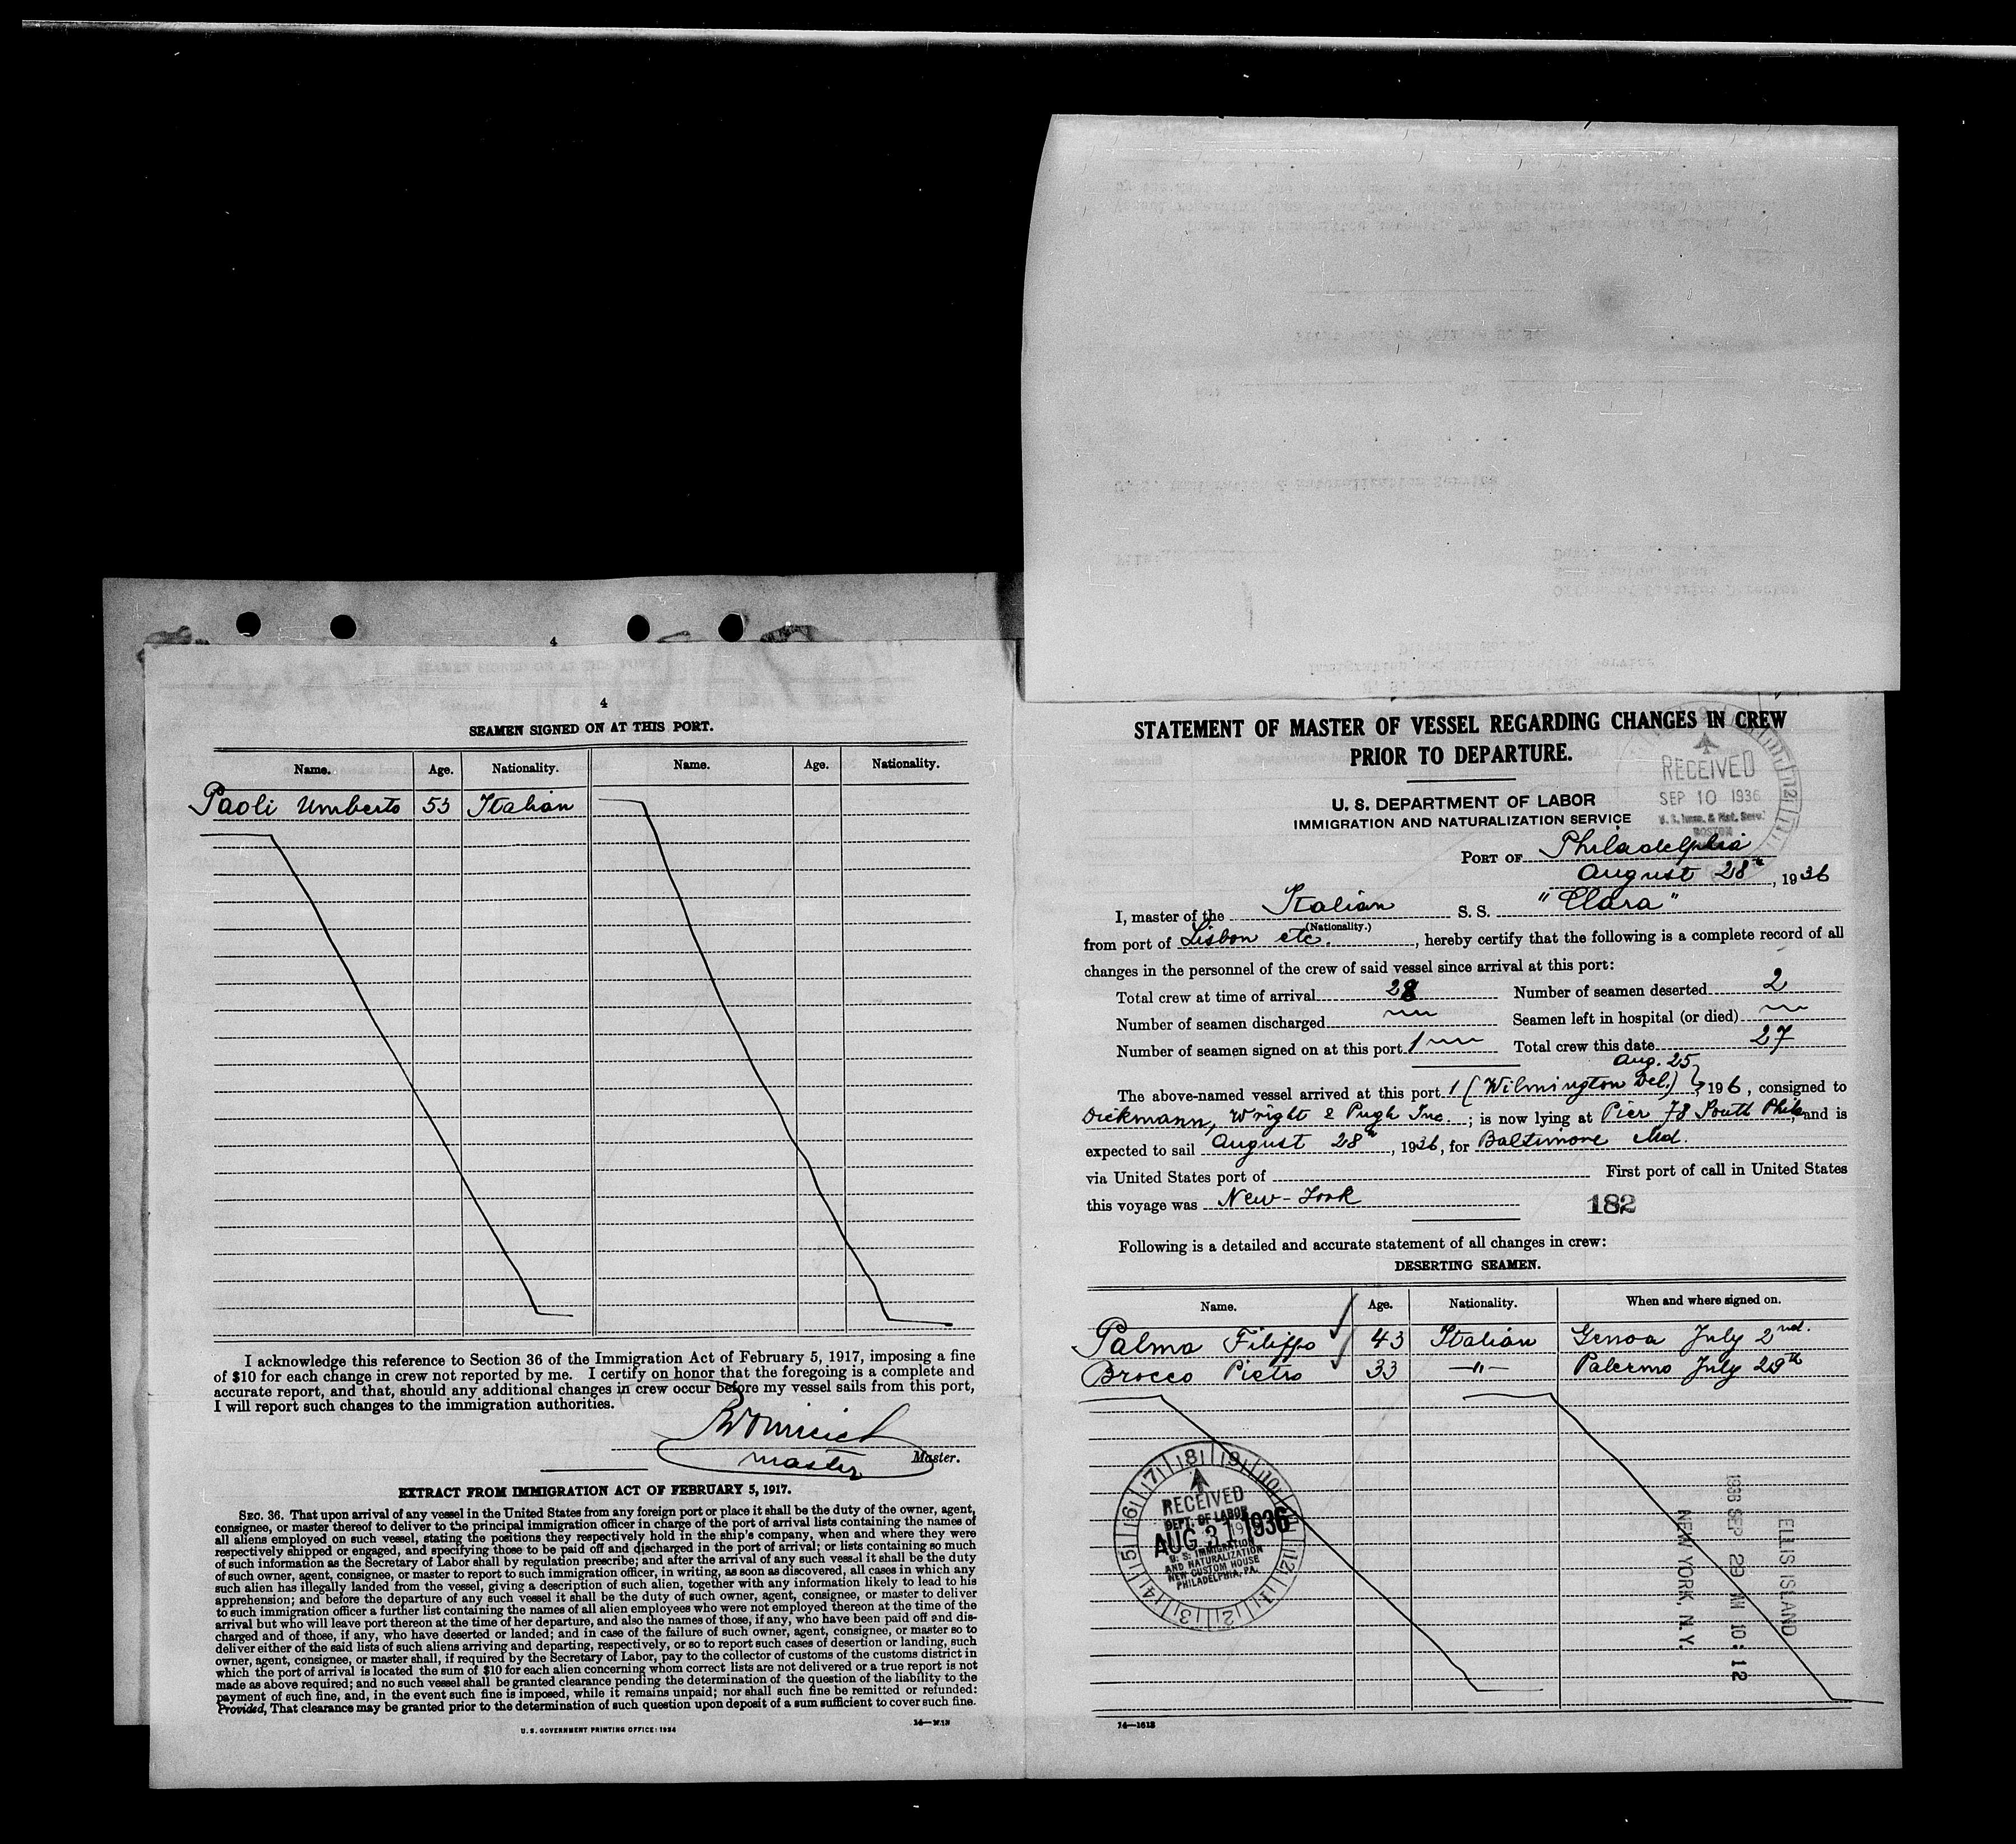 4
4
SEAMEN SIGNED ON AT THIS PORT.
Name. Age. Nationality. Name. Age. Nationality.
Paoli Umberto 53 Italian
I acknowledge this reference to Section 36 of the Immigration Act of February 5, 1917, imposing a fine
of $10 for each change in crew not reported by me. I certify on honor that the foregoing is a complete and
accurate report, and that, should any additional changes in crew occur before my vessel sails from this port,
I will report such changes to the immigration authorities.
master Master.
EXTRACT FROM IMMIGRATION ACT OF FEBRUARY 5, 1917.
SEC. 36. That upon arrival of any vessel in the United States from any foreign port or place it shall be the duty of the owner, agent,
consignee, or master thereof to deliver to the principal immigration officer in charge of the port of arrival lists containing the names of
all aliens employed on such vessel, stating the positions they respectively hold in the ship's company, when and where they were
respectively shipped or engaged, and specifying those to be paid off and discharged in the port of arrival; or lists containing so much
of such information as the Secretary of Labor shall by regulation prescribe; and after the arrival of any such vessel it shall be the duty
of such owner, agent, consignee, or master to report to such immigration officer, in writing, as soon as discovered, all cases in which any
such alien has illegally landed from the vessel, giving a description of such alien, together with any information likely to lead to his
apprehension; and before the departure of any such vessel it shall be the duty of such owner, agent, consignee, or master to deliver
to such immigration officer a further list containing the names of all alien employees who were not employed thereon at the time of the
arrival but who will leave port thereon at the time of her departure, and also the names of those, if any, who have been paid off and dis-
charged and of those, if any, who have deserted or landed; and in case of the failure of such owner, agent, consignee, or master so to
deliver either of the said lists of such aliens arriving and departing, respectively, or so to report such cases of desertion or landing, such
owner, agent, consignee, or master shall, if required by the Secretary of Labor, pay to the collector of customs of the customs district in
which the port of arrival is located the sum of $10 for each alien concerning whom correct lists are not delivered or a true report is not
made as above required; and no such vessel shall be granted clearance pending the determination of the question of the liability to the
payment of such fine, and, in the event such fine is imposed, while it remains unpaid; nor shall such fine be remitted or refunded:
Provided, That clearance may be granted prior to the determination of such question upon deposit of a sum sufficient to cover such fine.
U. S. GOVERNMENT PRINTING OFFICE: 1934
STATEMENT OF MASTER OF VESSEL REGARDING CHANGES IN CREW
PRIOR TO DEPARTURE.
RECEIVED
SEP 10 1936
U. S. Imm. & Nat. Serv.
BOSTON
U. S. DEPARTMENT OF LABOR
IMMIGRATION AND NATURALIZATION SERVICE
PORT OF Philadelphia
August 28th, 1936
I, master of the Italian S. S. "Clara"
(Nationality.)
from port of Lisbon etc., hereby certify that the following is a complete record of all
changes in the personnel of the crew of said vessel since arrival at this port:
Total crew at time of arrival 28 Number of seamen deserted 2
Number of seamen discharged Seamen left in hospital (or died)
Number of seamen signed on at this port 1 Total crew this date 27
Aug. 25
The above-named vessel arrived at this port (Wilmington Del.), 1936, consigned to
Dickmann, Wright & Pugh Inc.; is now lying at Pier 78 South Phila, and is
expected to sail August 28th, 1936, for Baltimore Md.
via United States port of First port of call in United States
this voyage was New-York
182
Following is a detailed and accurate statement of all changes in crew:
DESERTING SEAMEN.
Name. Age. Nationality. When and where signed on.
Palma Filippo 43 Italian Genoa July 2nd.
Brocco Pietro 33 —"— Palermo July 29th
RECEIVED
DEPT. OF LABOR
AUG 31 1936
U. S. IMMIGRATION
AND NATURALIZATION
NEW CUSTOM HOUSE
PHILADELPHIA, PA.
ELLIS ISLAND
1936 SEP 29 AM 10:12
NEW YORK, N. Y.
14—1613